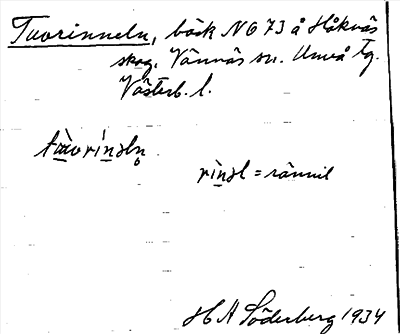 Tvorinneln, bäck N 673 å Håknäs
skog, Vännäs sn. Umeå tg.
Västerb. l.
rìnsl = rännil
H A Söderberg 1934